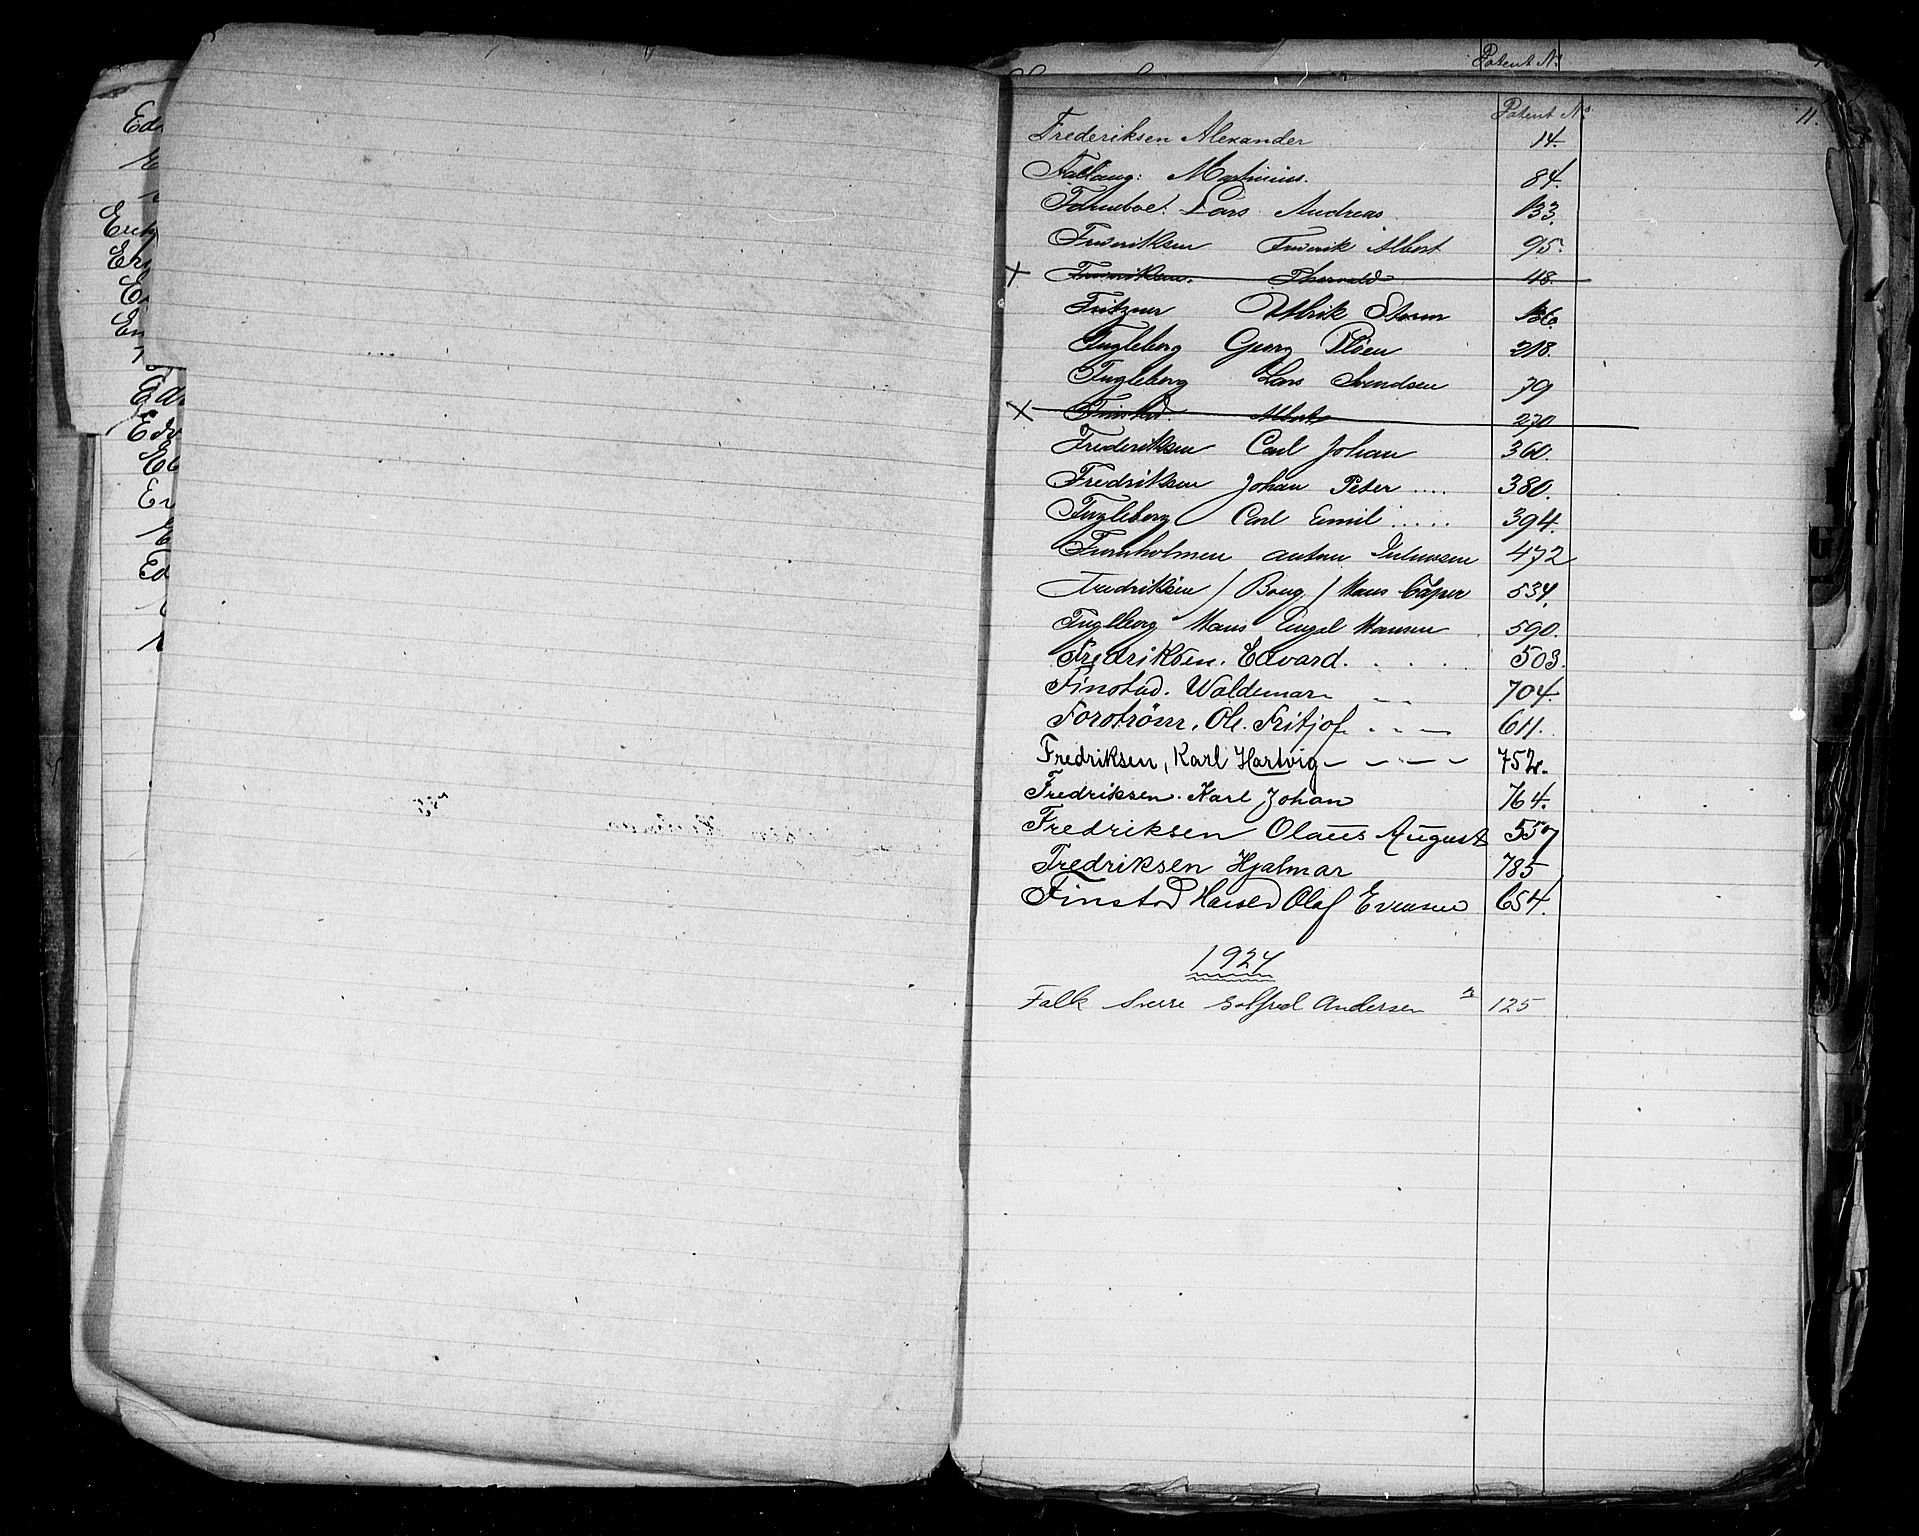 Ed
E
Erik
Er
E
En
Ed
Edv
El
Er
Ed
Patent No
Patent No
11.
Frederiksen Alexander 14.
Fallang: Martinius. 84.
Forneboe: Lars Andreas 133.
Frederiksen Fredrik Albert 95.
x Frederiksen. Thorvald 48.
Fritzner Ulrik Storm
Fugleberg Georg Olsen 218.
Fugleberg Lars Svendsen 79
x Finstad. Albert 270
Frederiksen Carl Johan 360.
Fredriksen Johan Peter .... 380.
Fugleberg Carl Emil ..... 394.
Furuholmen Anton Juliussen 472
Fredriksen / Bong / Hans Casper 534.
Fuglberg Hans Engel Hansen 590.
Fredriksen. Edvard. . . . . . 503.
Finstad. Waldemar 704.
Forström, Ol. Fritjof 611.
Fredriksen, Karl Hartvig - - - - - 752.
Fredriksen. Karl Johan 764.
Fredriksen Olaus August 557
Fredriksen Hjalmar 785
Finstad Harald Olaf Evensen 654.
1927
Falk Sverre Golfred Andersen 125